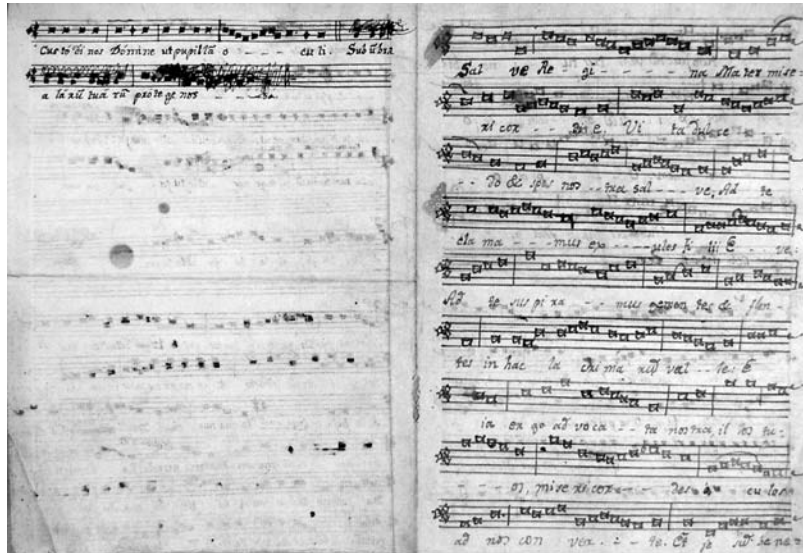 Cus to di nos Dómine ut pupillã o - - - - cu li. Sub ũbra
a lá rũ tuá rũ pró te ge nos - - - -
Sal ve Re - gi - - - - - na Ma ter mise =
ri cor - - die, Vi ta dulce - -
- - do & spes nos - - tra sal - - ve, Ad te
cla ma - - - mus ex - - - - ules fi lii E - ve.
Ad te sus pi ra - - - mus gemen tes & flen -
tes in hac la chri ma rũ val - - le. E
ia er go ad vo ca - - ta nos tra, il los tu -
- - - os, mise ri cor - - - - des o cu los
ad nos con ver - - - te. Et